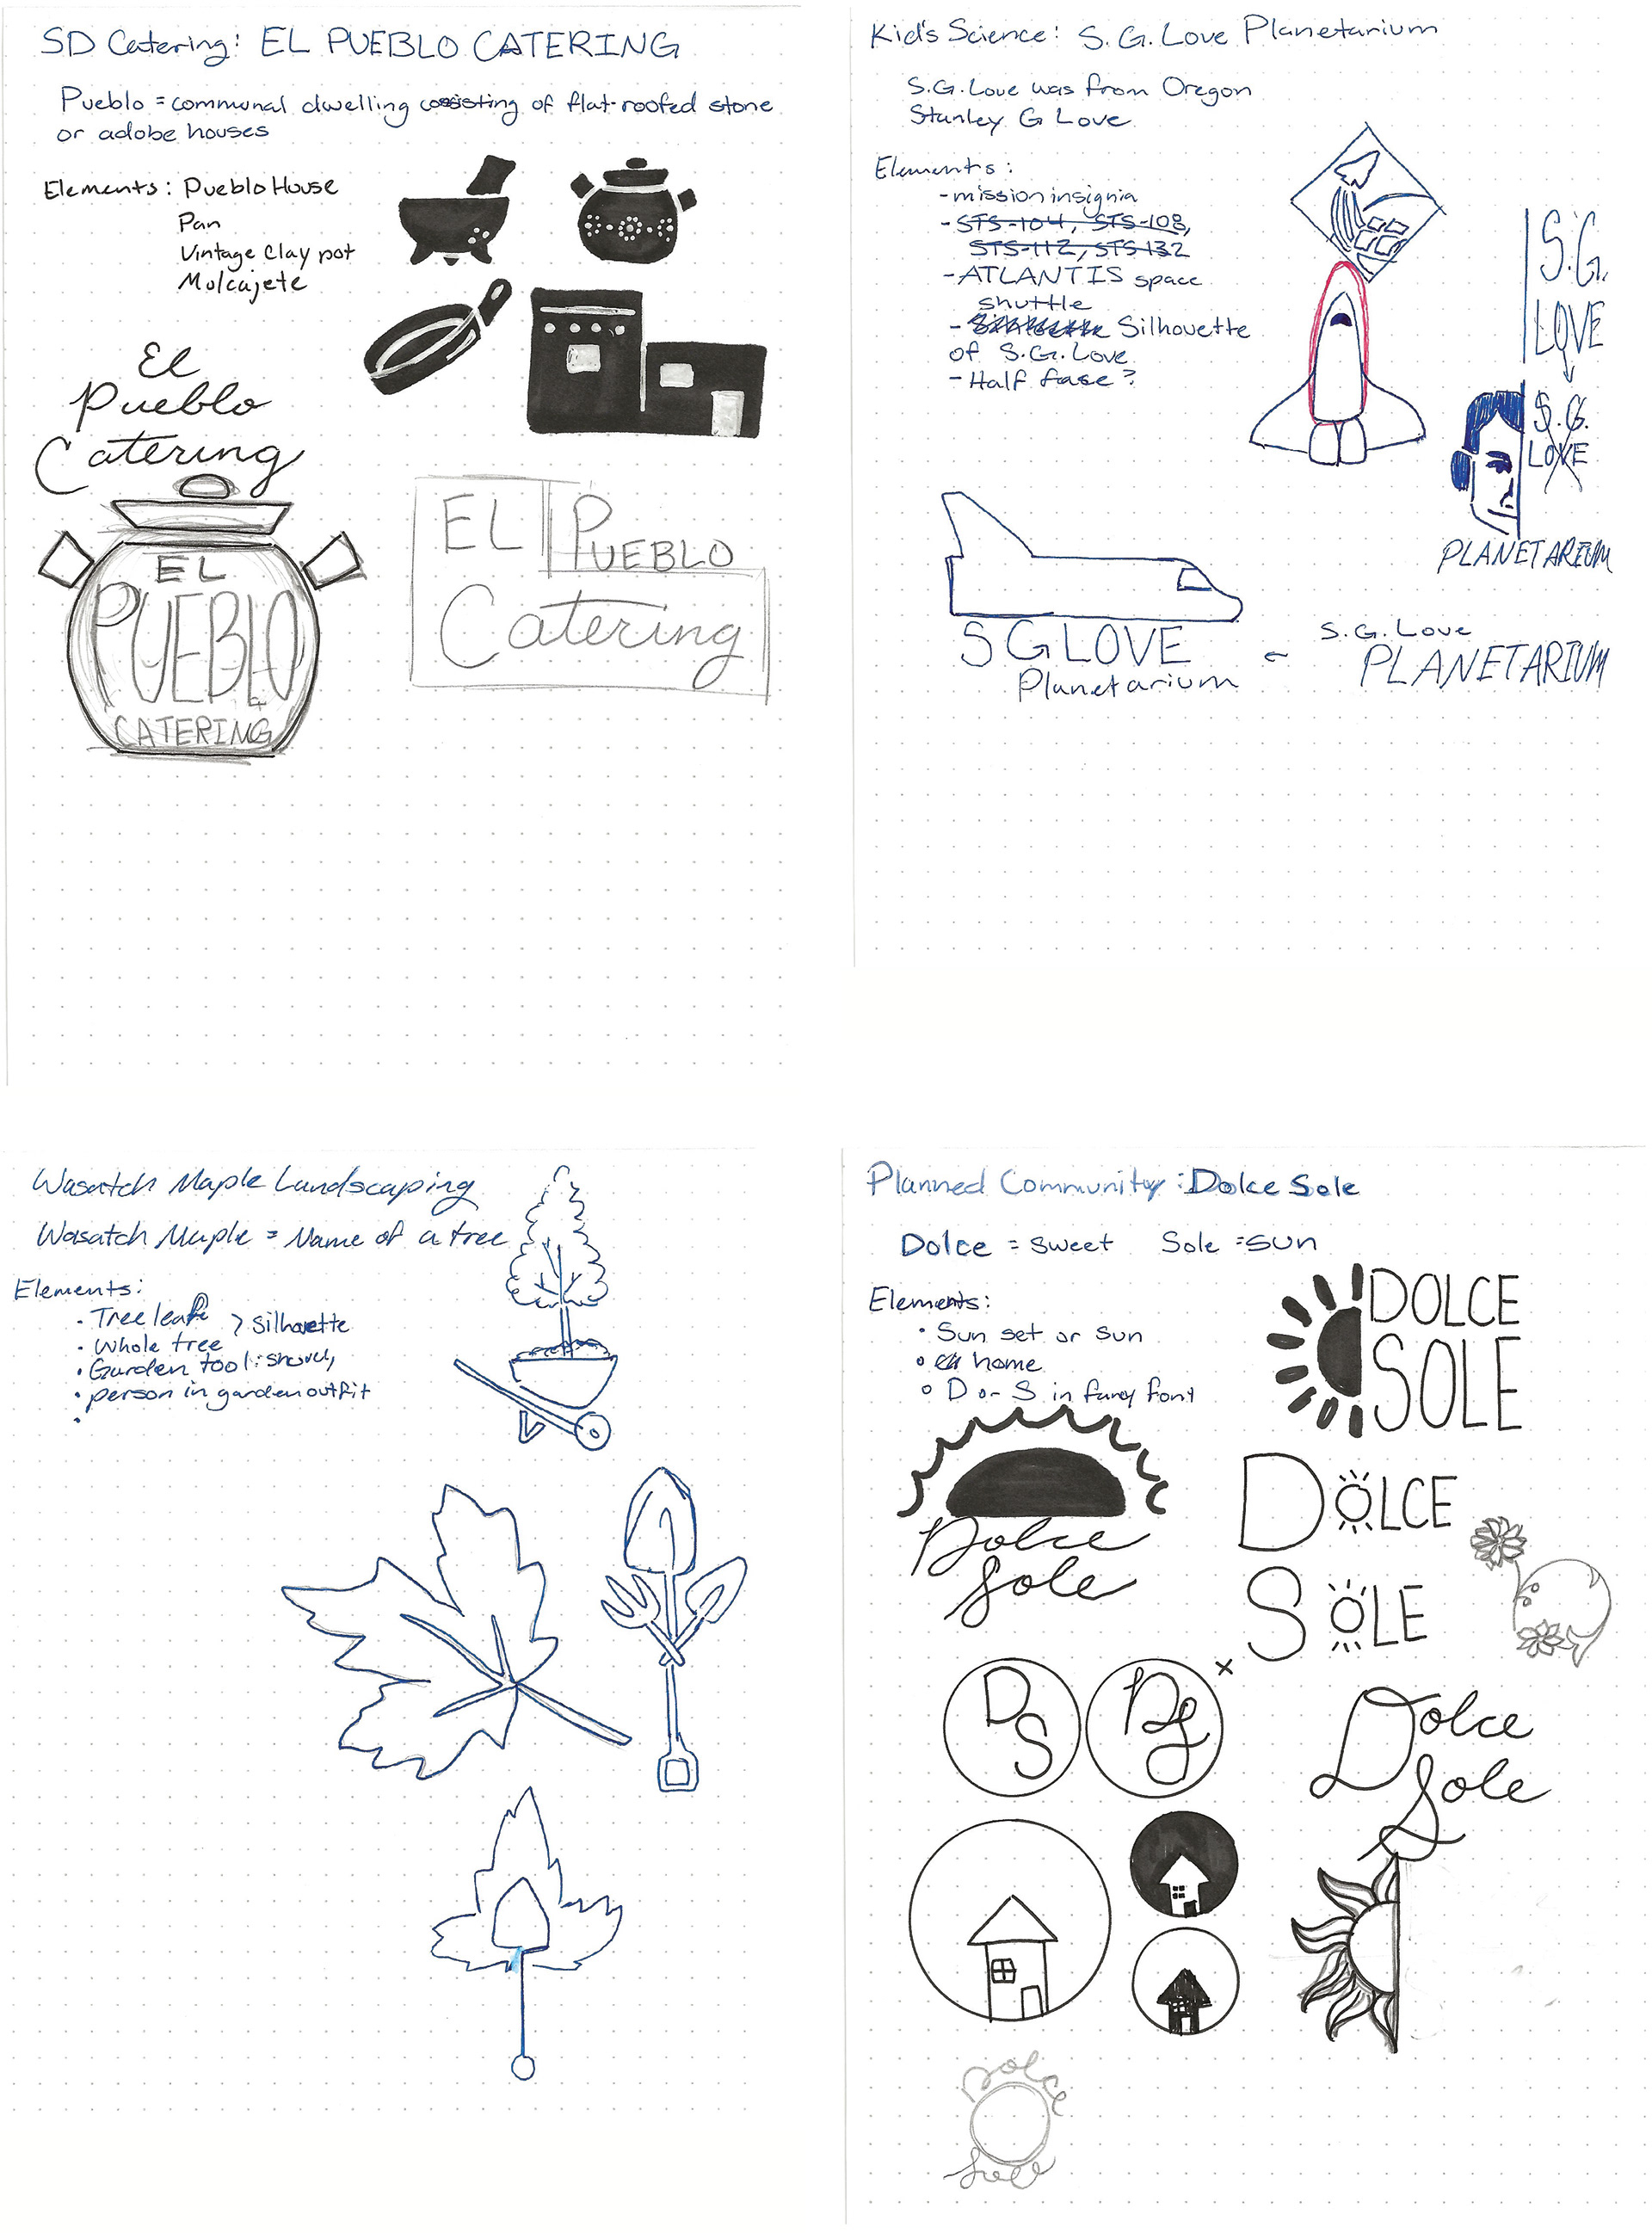 SD Catering: EL PUEBLO CATERING
Pueblo = communal dwelling cosisting of flat-roofed stone
or adobe houses
Elements: Pueblo House
Pan
Vintage Clay pot
Molcajete
El
Pueblo
Catering
EL
PUEBLO
CATERING
EL PUEBLO
Catering
Kid's Science: S.G. Love Planetarium
S.G. Love was from Oregon
Stanley G Love
Elements:
- mission insignia
- STS-104, STS-108,
STS-112, STS-132
- ATLANTIS space
shuttle
- Silhouette
of S.G. Love
- Half fase?
S.G.
LOVE
S.G.
LOVE
PLANETARIUM
S G LOVE
Planetarium
S.G. Love
PLANETARIUM
Wasatch Maple Landscaping
Wasatch Maple = Name of a tree
Elements:
• Tree leaf
> Silhouette
• Whole tree
• Garden tool: shovel
• person in garden outfit
•
Planned Community: Dolce Sole
Dolce = sweet Sole = sun
Elements:
• Sun set or sun
• home
• D or S in fancy font
DOLCE
SOLE
Dolce
Sole
DOLCE
SOLE
DS
DS
x
Dolce
Sole
Dolce
Sole